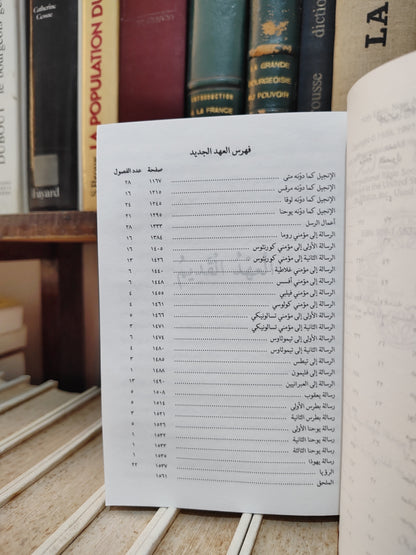 Catherine
LA POPULATION DU
INTRODUCTION
A LA FRANCE
LA
GRANDE
BOURGEOISIE
AU POUVOIR
dictionn
larousse
LA
DUBOUT
le bourgeois
فهرس العهد الجديد
صفحة عدد الفصول
الإنجيل كما دوّنه متى ١١٦٧ ٢٨
الإنجيل كما دوّنه مرقس ١٢١٥ ١٦
الإنجيل كما دوّنه لوقا ١٢٤٥ ٢٤
الإنجيل كما دوّنه يوحنا ١٢٩٥ ٢١
أعمال الرسل ١٣٣٣ ٢٨
الرسالة إلى مؤمني روما ١٣٨٤ ١٦
الرسالة الأولى إلى مؤمني كورنثوس ١٤٠٥ ١٦
الرسالة الثانية إلى مؤمني كورنثوس ١٤٢٦ ١٣
الرسالة إلى مؤمني غلاطية ١٤٤٠ ٦
الرسالة إلى مؤمني أفسس ١٤٤٨ ٦
الرسالة إلى مؤمني فيلبي ١٤٥٥ ٤
الرسالة إلى مؤمني كولوسي ١٤٦١ ٤
الرسالة الأولى إلى مؤمني تسالونيكي ١٤٦٦ ٥
الرسالة الثانية إلى مؤمني تسالونيكي ١٤٧١ ٣
الرسالة الأولى إلى تيموثاوس ١٤٧٤ ٦
الرسالة الثانية إلى تيموثاوس ١٤٨٠ ٤
الرسالة إلى تيطس ١٤٨٥ ٣
الرسالة إلى فليمون ١٤٨٨ ١
الرسالة إلى العبرانيين ١٤٩٠ ١٣
رسالة يعقوب ١٥٠٨ ٥
رسالة بطرس الأولى ١٥١٤ ٥
رسالة بطرس الثانية ١٥٢١ ٣
رسالة يوحنا الأولى ٥
رسالة يوحنا الثانية ١٥٣٢ ١
رسالة يوحنا الثالثة ١٥٣٣ ١
رسالة يهوذا ١٥٣٥ ١
الرؤيا ١٥٣٧ ٢٢
الملحق ١٥٦١